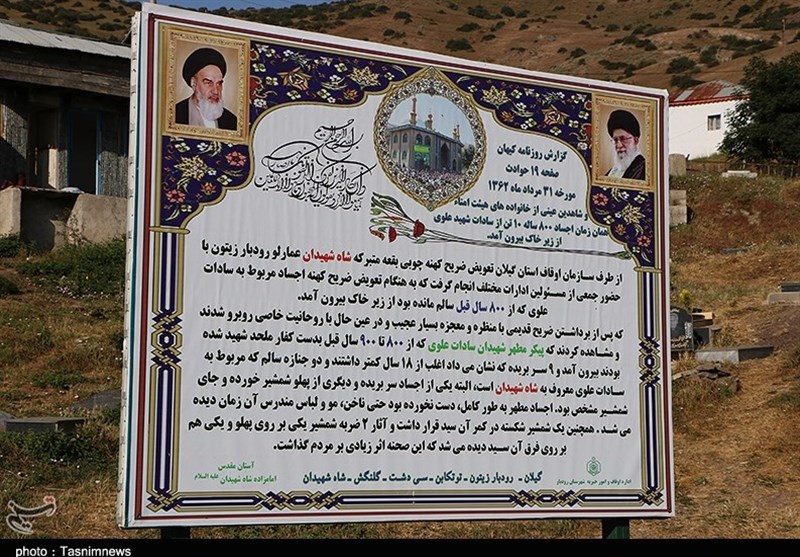 گزارش روزنامه کیهان
صفحه ۱۹ حوادث
مورخه ۳۱ مرداد ماه ۱۳۶۲
و شاهدین عینی از خانواده های هیئت امناء
همان زمان اجساد ۸۰۰ ساله ۱۰ تن از سادات شهید علوی
از زیر خاک بیرون آمد.
از طرف سازمان اوقاف استان گیلان تعویض ضریح کهنه چوبی بقعه متبرکه شاه شهیدان عمارلو رودبار زیتون با
حضور جمعی از مسئولین ادارات مختلف انجام گرفت که به هنگام تعویض ضریح کهنه اجساد مربوط به سادات
علوی که از ۸۰۰ سال قبل سالم مانده بود از زیر خاک بیرون آمد.
که پس از برداشتن ضریح قدیمی با منظره و معجزه بسیار عجیب و در عین حال با روحانیت خاصی روبرو شدند
و مشاهده کردند که پیکر مطهر شهیدان سادات علوی که از ۸۰۰ تا ۹۰۰ سال قبل بدست کفار ملحد شهید شده
بودند بیرون آمد و ۹ سر بریده که نشان می داد اغلب از ۱۸ سال کمتر داشتند و دو جنازه سالم که مربوط به
سادات علوی معروف به شاه شهیدان است، البته یکی از اجساد سر بریده و دیگری از پهلو شمشیر خورده و جای
شمشیر مشخص بود. اجساد مطهر به طور کامل، دست نخورده بود حتی ناخن، مو و لباس مندرس آن زمان دیده
می شد. همچنین یک شمشیر شکسته در کمر آن سید قرار داشت و آثار ۲ ضربه شمشیر یکی بر روی پهلو و یکی هم
بر روی فرق آن سید دیده می شد که این صحنه اثر زیادی بر مردم گذاشت.
اداره اوقاف و امور خیریه شهرستان رودبار
گیلان - رودبار زیتون - توتکابن - سی دشت - گلنگش - شاه شهیدان
آستان مقدس
امامزاده شاه شهیدان علیه السلام
photo : Tasnimnews